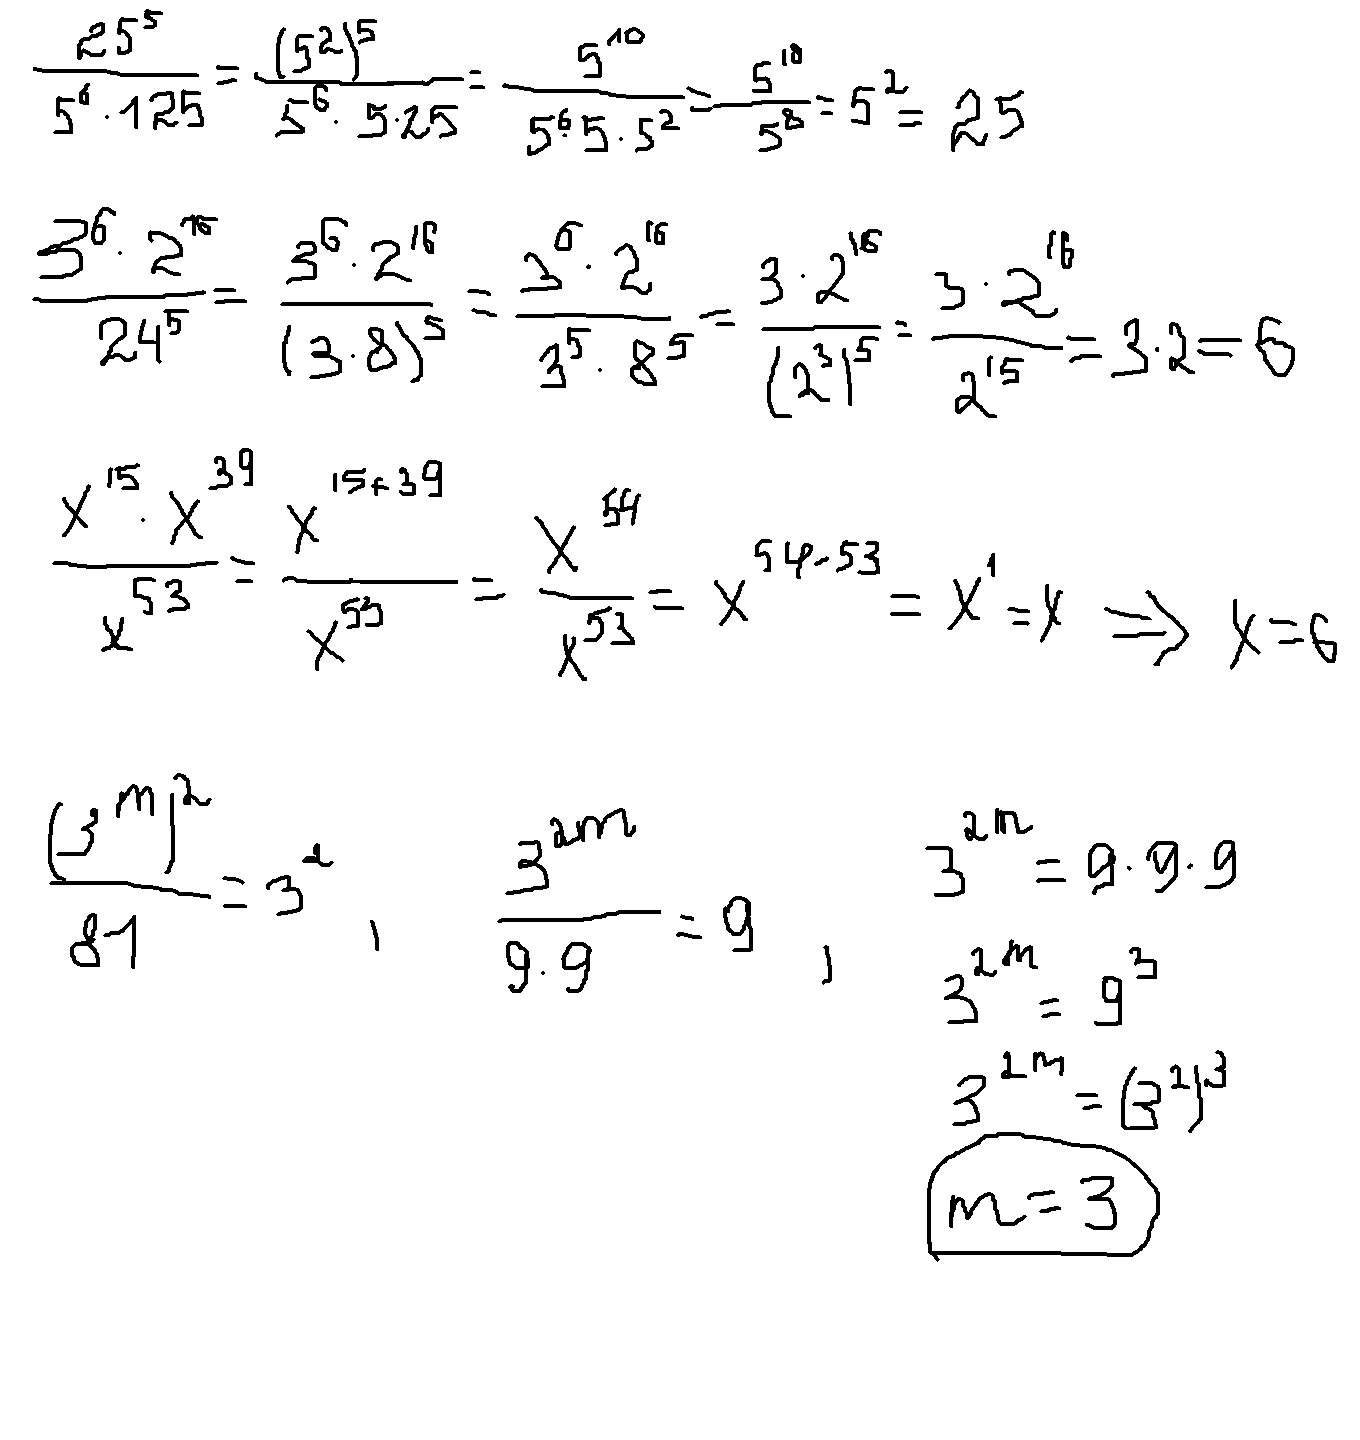 25⁵/(5⁶·125) = (5²)⁵/(5⁶·5·25) = 5¹⁰/(5⁶·5·5²) = 5¹⁰/5⁸ = 5² = 25
3⁶·2¹⁶/24⁵ = 3⁶·2¹⁶/(3·8)⁵ = 3⁶·2¹⁶/(3⁵·8⁵) = 3·2¹⁶/(2³)⁵ = 3·2¹⁶/2¹⁵ = 3·2 = 6
x¹⁵·x³⁹/x⁵³ = x¹⁵⁺³⁹/x⁵³ = x⁵⁴/x⁵³ = x⁵⁴⁻⁵³ = x¹ = x ⇒ x = 6
(3ᵐ)²/81 = 3², 3²ᵐ/(9·9) = 9, 3²ᵐ = 9·9·9
3²ᵐ = 9³
3²ᵐ = (3²)³
m = 3